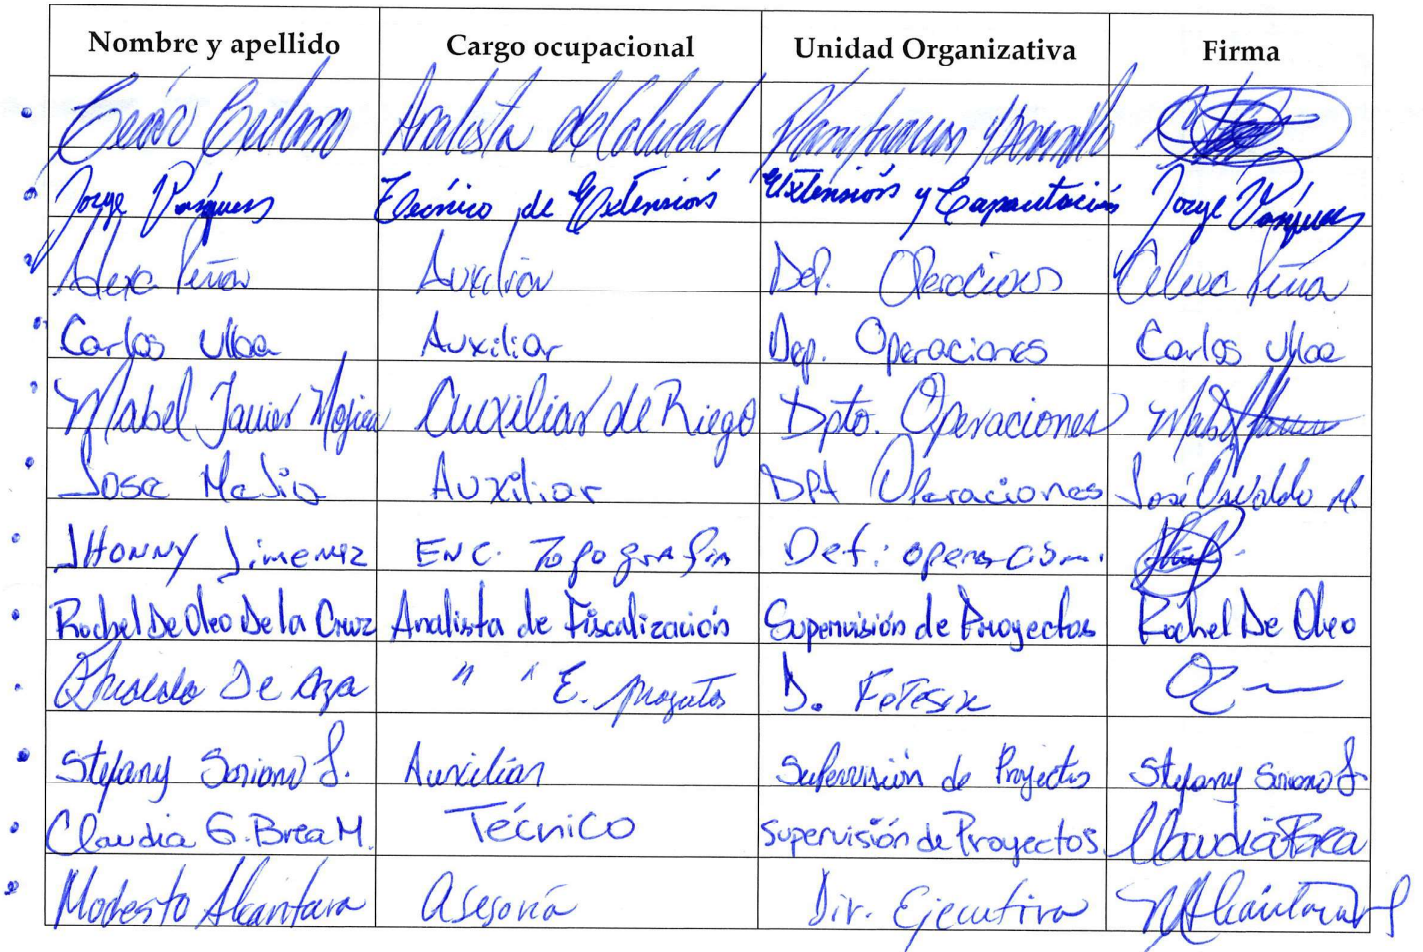 Nombre y apellido Cargo ocupacional Unidad Organizativa Firma
Analista de Calidad
Jorge Vásquez Técnico de Extensión Extensión y Capacitación Jorge Vásquez
Alexa Peña Auxiliar Dep. Operaciones Alexa Peña
Carlos Ulloa Auxiliar Dep. Operaciones Carlos Ulloa
Mabel Javier Mojica Auxiliar de Riego Dpto. Operaciones
Jose Mejia Auxiliar DPt Operaciones José Osvaldo M.
JHONNY Jimenez ENC. Topografia
Rochel De Oleo De la Cruz Analista de Fiscalización Supervisión de Proyectos Rochel De Oleo
De Aza " " E. proyectos D.
Stefany Soriano S. Auxiliar Supervisión de Proyectos Stefany Soriano S.
Claudia G. Brea M. Técnico Supervisión de Proyectos. Claudia Brea
Modesto Alcantara Asesoría Dir. Ejecutiva MAlcantara